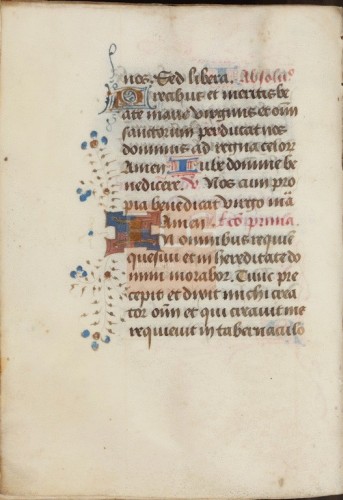 nos. Sed libera. Absolu°
Precibus et meritis be
ate marie virginis et om̄
sanctorum perducat nos
dominus ad regna celor
Amen Iube domne be
nedicere. Nos cum pro
pia benedicat virgo ma
Amen. Lc̄o prima
In omnibus requie
quesivi et in hereditate do
mini morabor. Tunc pre
cepit et dixit michi crea
tor om̄ et qui creavit me
requievit in tabernaculo